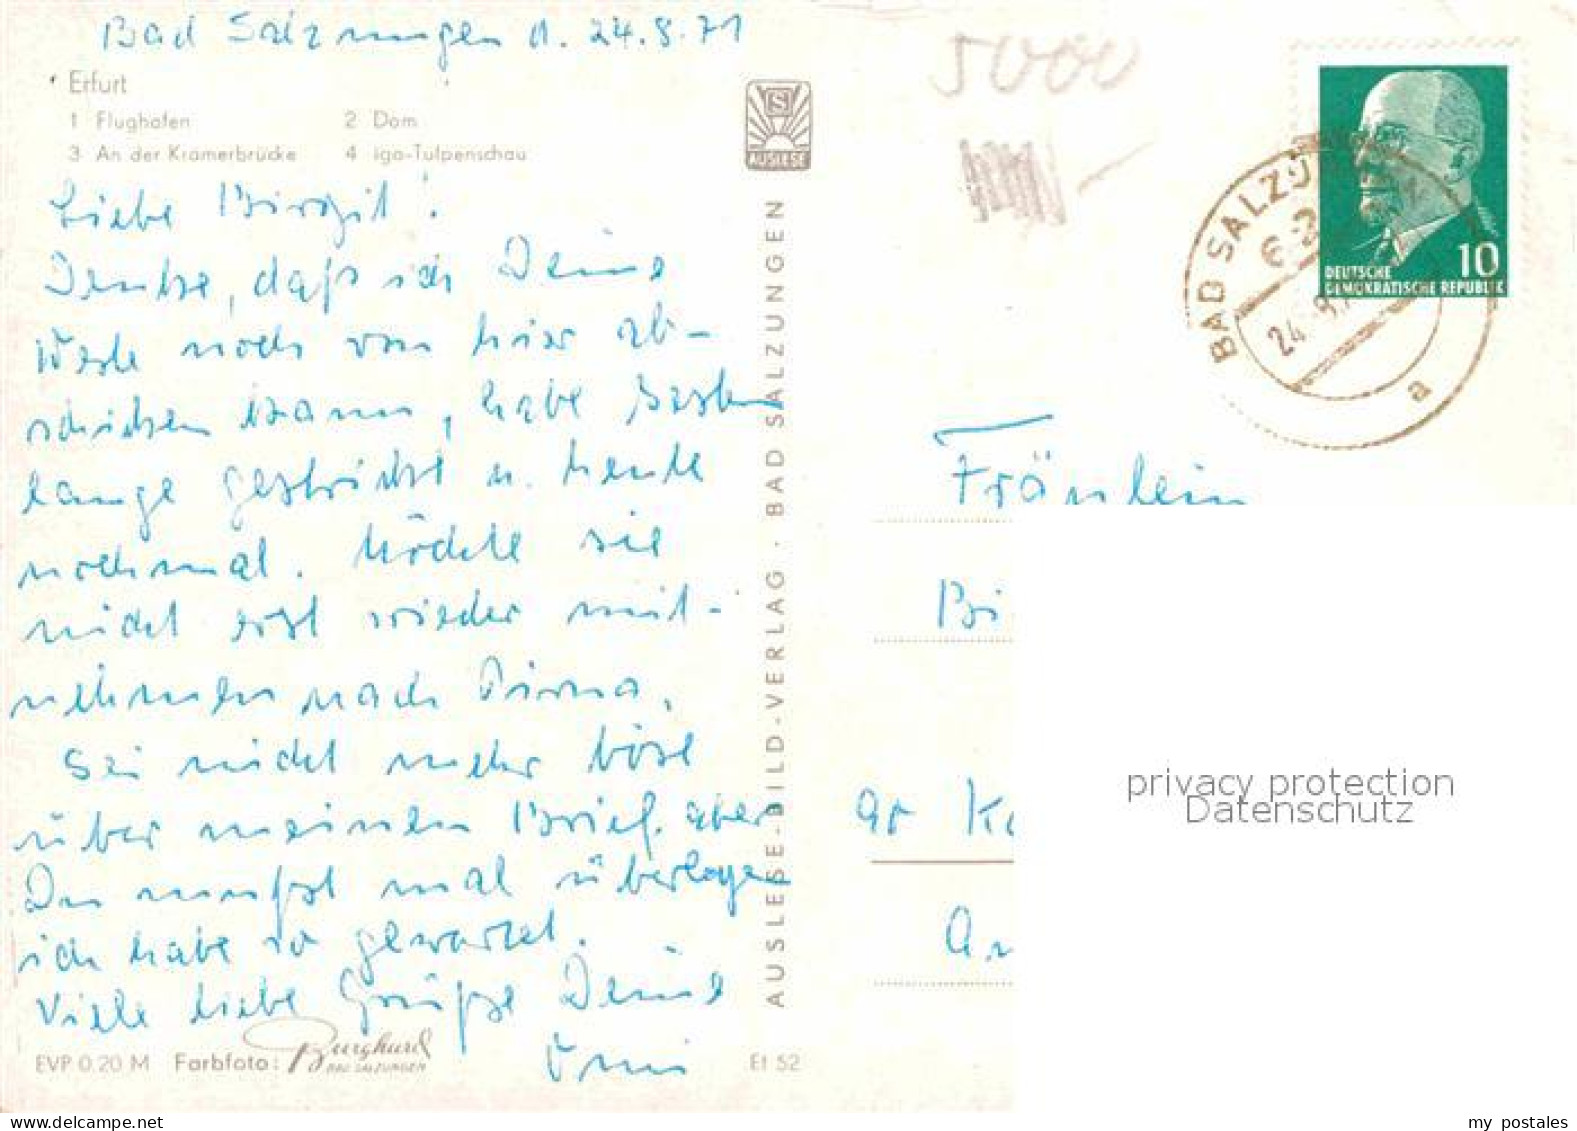 Bad Salzungen d. 24.8.71
Erfurt
1 Flughafen 2 Dom
3 An der Krämerbrücke 4 iga-Tulpenschau
S
AUSLESE
Liebe Birgit!
Denke, daß ich Deine
Weste noch von hier ab-
schicken kann, habe gestern
lange gestrickt u. heute
nochmal. Möchte sie
nicht erst wieder mit-
nehmen nach Pirna.
Sei nicht mehr böse
über meinen Brief, aber
Du mußt mal überlegen
ich habe so gewartet.
Viele liebe Grüße Deine
Omi
EVP 0.20 M Farbfoto: Burghard
BAD SALZUNGEN
Et 52
AUSLESE-BILD-VERLAG · BAD SALZUNGEN
5000
BAD SALZUNGEN
24. 8.71
a
10
DEUTSCHE
DEMOKRATISCHE REPUBLIK
Fräulein
Bi
privacy protection
Datenschutz
my postales